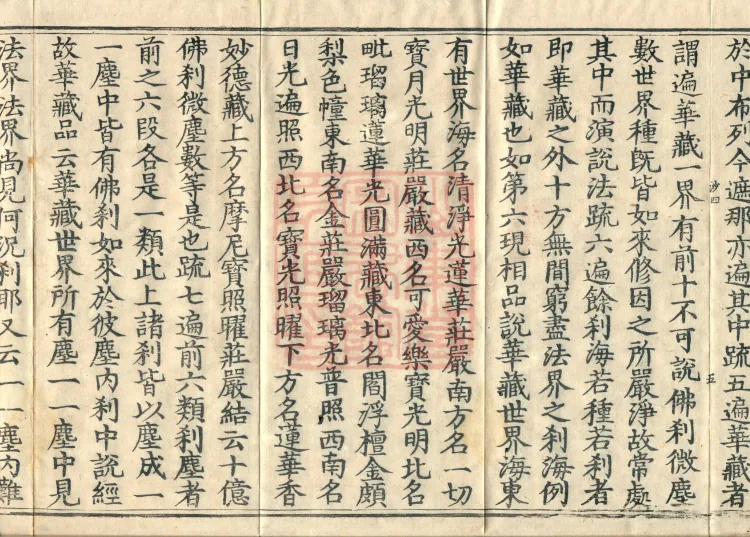 於中布列今遮那亦遍其中疏五遍華藏者
謂遍華藏一界有前十不可說佛刹微塵
數世界種旣皆如來修因之所嚴淨故常處
其中而演說法疏六遍餘刹海若種若刹者
即華藏之外十方無間窮盡法界之刹海例
如華藏也如第六現相品說華藏世界海東
有世界海名清淨光蓮華莊嚴南方名一切
寶月光明莊嚴藏西名可愛樂寶光明北名
毗瑠璃蓮華光圓滿藏東北名閻浮檀金頗
梨色幢東南名金莊嚴瑠璃光普照西南名
日光遍照西北名寶光照曜下方名蓮華香
妙德藏上方名摩尼寶照曜莊嚴結云十億
佛刹微塵數等是也疏七遍前六類刹塵者
前之六段各是一類此上諸刹皆以塵成一
一塵中皆有佛刹如來於彼塵內刹中說經
故華藏品云華藏世界所有塵一一塵中見
法界法界尚見何況刹耶又云一一塵內難
五